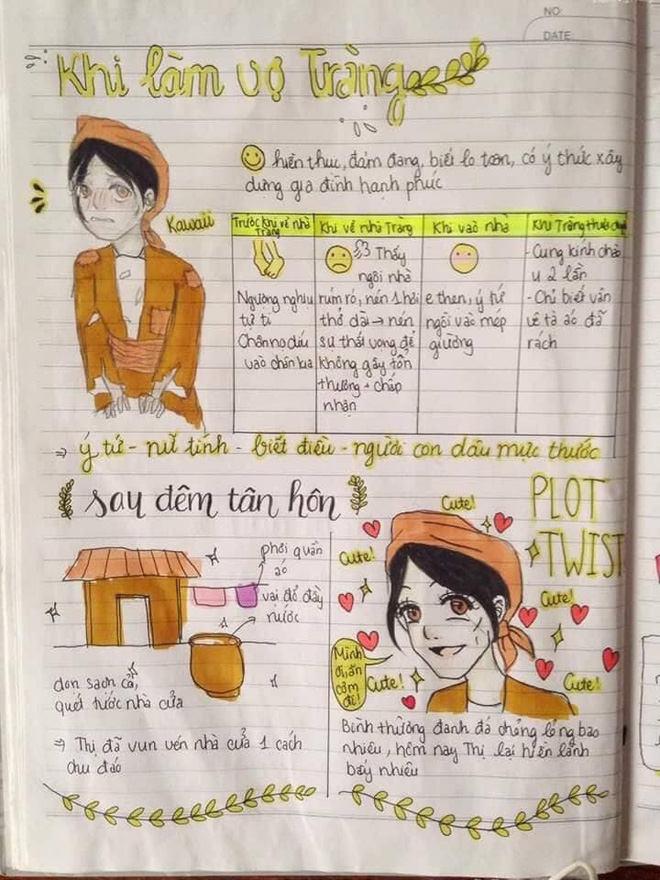 NO:
DATE:
Khi làm vợ Tràng
hiền thục, đảm đang, biết lo toan, có ý thức xây
dựng gia đình hạnh phúc
Kawaii
Trước khi về nhà Tràng
Ngượng nghịu
tự ti
Chân nọ díu
vào chân kia
Khi về nhà Tràng
Thấy
ngôi nhà
rúm ró, nén 1 hơi
thở dài → nén
sự thất vọng để
không gây tổn
thương + chấp
nhận
Khi vào nhà
e then, ý tứ
ngồi vào mép
giường
Khi Tràng
- Cung kính chào
u 2 lần
- Chỉ biết vân
vê tà áo đã
rách
⇒ ý tứ - nữ tính - biết điều - người con dâu mực thước
say đêm tân hôn
phơi quần
áo
vại đổ đầy
nước
dọn sạch cả,
quét tước nhà cửa
⇒ Thị đã vun vén nhà cửa 1 cách
chu đáo
PLOT
TWIST
Cute!
Cute!
Cute!
Cute!
Cute!
Mình
ơi, ăn
cơm
đi!
Bình thường đanh đá chỏng lỏng bao
nhiêu, hôm nay Thị lại hiền lành
bấy nhiêu